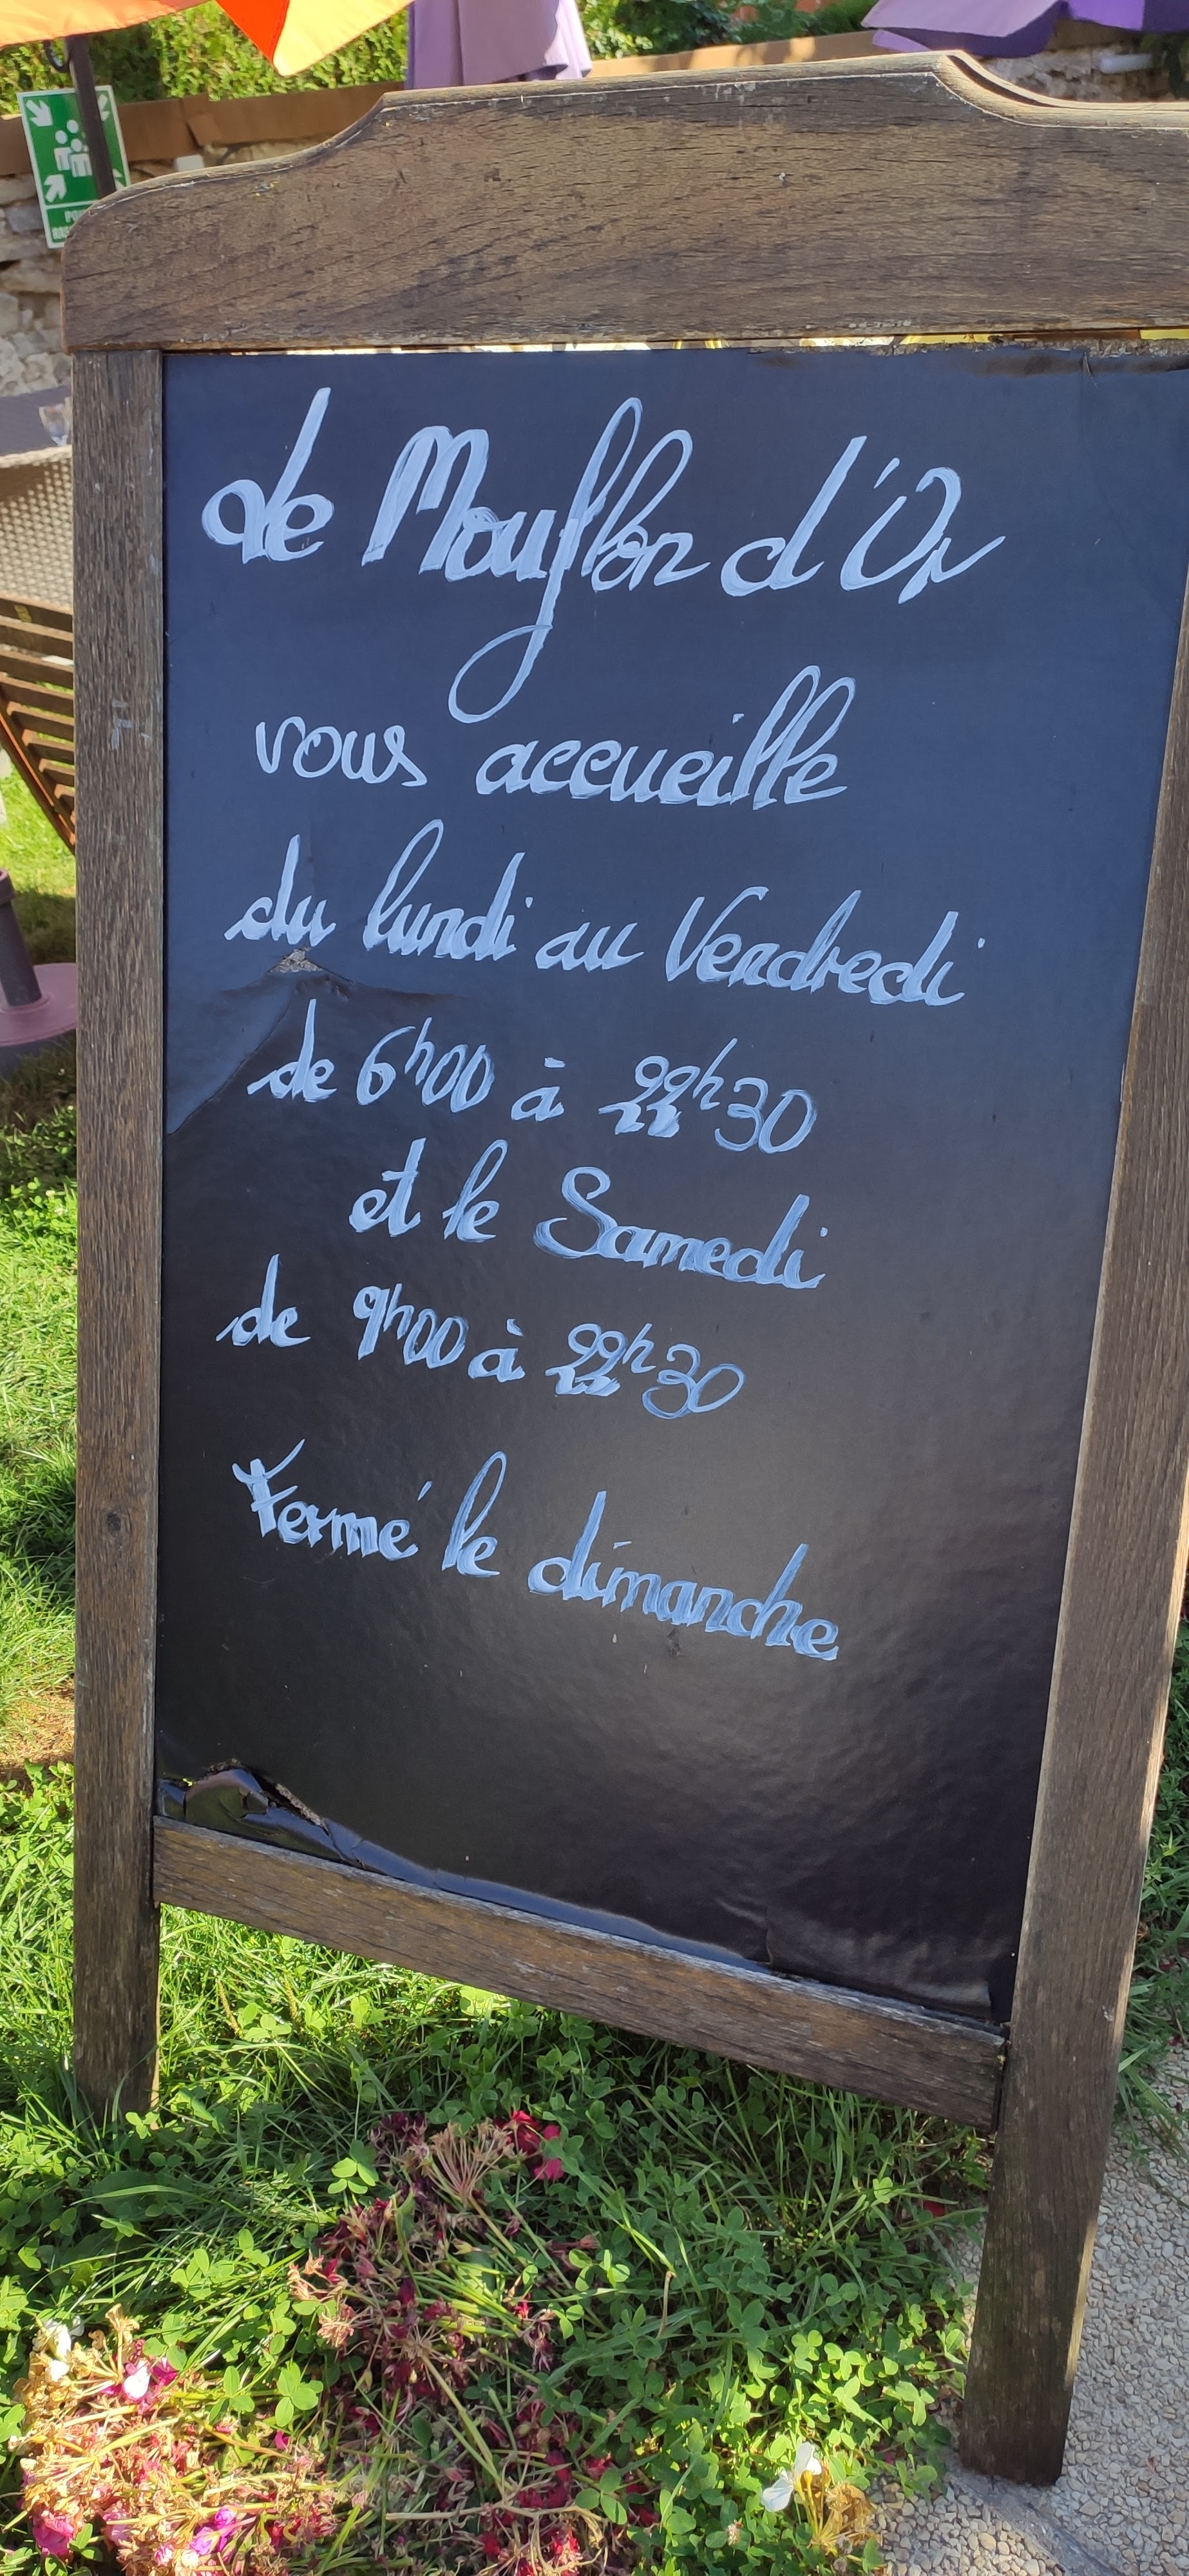 de Mouflon d'Or
vous accueille
du lundi au Vendredi
de 6h00 à 22h30
et le Samedi
de 9h00 à 22h30
Fermé le dimanche